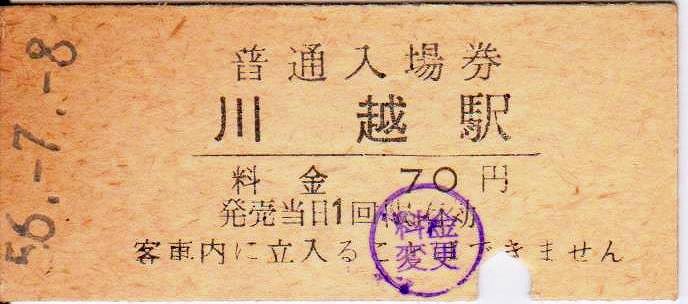 56.-7.-8
普通入場券
川越駅
料金 70円
発売当日1回限り有効
料金
変更
客車内に立入ることはできません